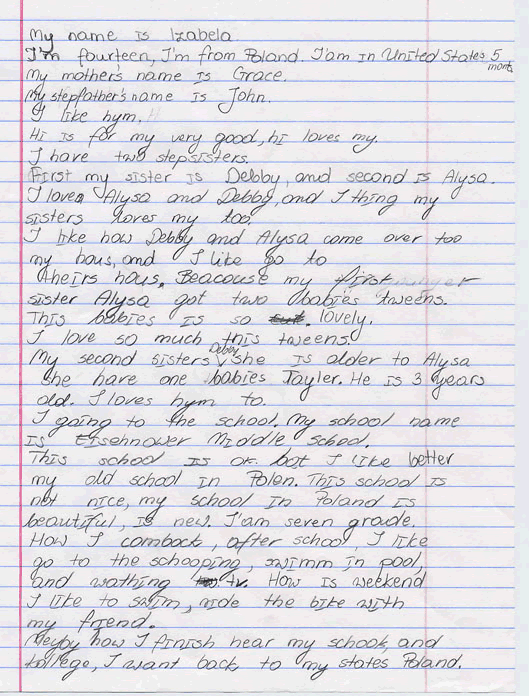 My name is Izabela
I'm fourteen, I'm from Poland. I'am in United States 5 mont
My mother's name is Grace.
My stepfather's name is John.
I like hym.
Hi is for my very good, hi loves my.
I have two stepsisters.
First my sister is Debby, and second is Alysa.
I loven Alysa and Debby, and I thing my
sisters loves my too.
I like how Debby and Alysa come over too
my hous, and I like go to
theirs hous. Beacouse my first
sister Alysa got two babies tweens.
This babies is so cut. lovely.
I love so much this tweens.
My second sisters Debby she is older to Alysa
she have one babies Tayler. He is 3 years
old. I loves hym to.
I going to the school. My school name
is Eisenhower Middle school.
This school is ok. bat I like better
my old school in Polen. This school is
not nice, my school in Poland is
beautiful, is new. I'am seven grade.
How I comback, after school, I like
go to the schooping, swimm in pool,
and wathing tv. How is weekend
I like to swim, ride the bike with
my friend.
Meyby how I finish hear my school, and
kollege, I want back to my states Poland.